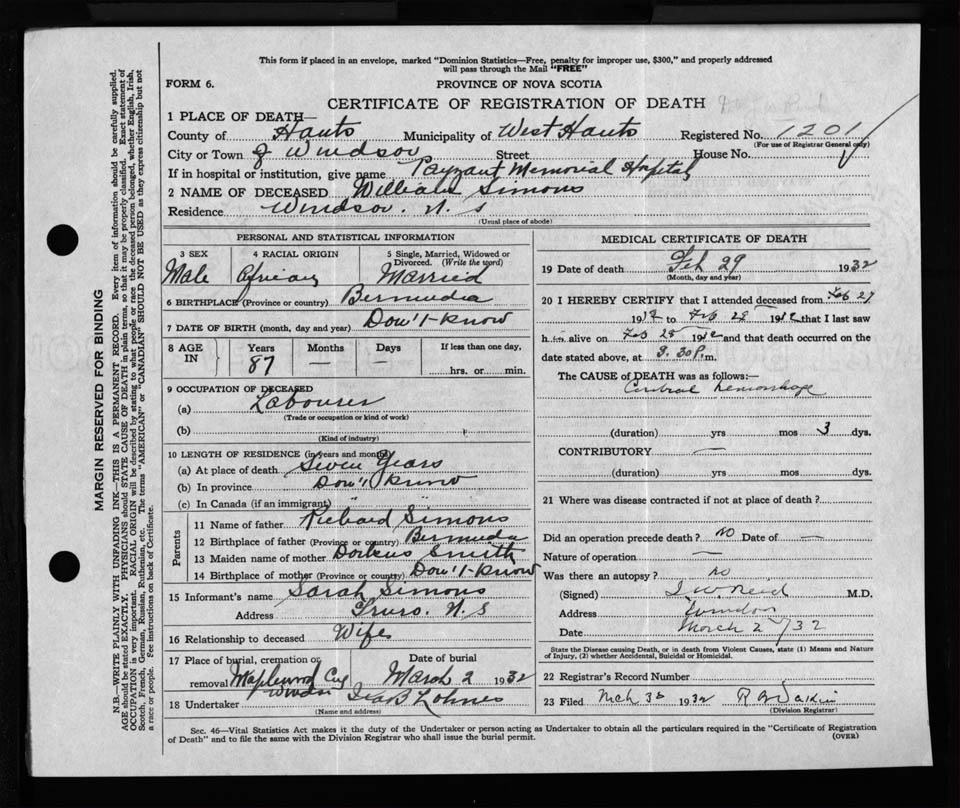 This form if placed in an envelope, marked "Dominion Statistics—Free, penalty for improper use, $300," and properly addressed
will pass through the Mail "FREE"
FORM 6.
PROVINCE OF NOVA SCOTIA
CERTIFICATE OF REGISTRATION OF DEATH
1 PLACE OF DEATH—
County of Hants Municipality of West Hants Registered No. 1201
(For use of Registrar General only)
City or Town of Windsor Street House No.
If in hospital or institution, give name Payzant Memorial Hospital
2 NAME OF DECEASED William Simons
Residence Windsor. N. S
(Usual place of abode)
PERSONAL AND STATISTICAL INFORMATION
3 SEX 4 RACIAL ORIGIN 5 Single, Married, Widowed or
Divorced. (Write the word)
Male African Married
6 BIRTHPLACE (Province or country) Bermudia
7 DATE OF BIRTH (month, day and year) Don't Know
8 AGE IN Years Months Days If less than one day,
87 — hrs. or min.
9 OCCUPATION OF DECEASED
(a) Labourer
(Trade or occupation or kind of work)
(b)
(Kind of industry)
10 LENGTH OF RESIDENCE (in years and months)
(a) At place of death Seven Years
(b) In province Don't Know
(c) In Canada (if an immigrant) " "
Parents
11 Name of father Richard Simons
12 Birthplace of father (Province or country) Bermuda
13 Maiden name of mother Smith
14 Birthplace of mother (Province or country) Don't Know
15 Informant's name Sarah Simons
Address Truro. N. S
16 Relationship to deceased Wife
17 Place of burial, cremation or Date of burial
removal Maplewood Cem March 2 1932
Windsor
18 Undertaker Ira B Lohnes
(Name and address)
MEDICAL CERTIFICATE OF DEATH
19 Date of death Feb 29 1932
(Month, day and year)
20 I HEREBY CERTIFY that I attended deceased from Feb 27
19 to Feb 28 19 that I last saw
him alive on Feb 28 19 and that death occurred on the
date stated above, at 9.30 P. m.
The CAUSE of DEATH was as follows:—
Cerebral hemorrhage
(duration) yrs mos 3 dys.
CONTRIBUTORY —
(duration) yrs mos dys.
21 Where was disease contracted if not at place of death?
Did an operation precede death? no Date of —
Nature of operation —
Was there an autopsy? no
(Signed) J W Reid M.D.
Address Windsor
Date March 2/32
State the Disease causing Death, or in death from Violent Causes, state (1) Means and Nature
of Injury, (2) whether Accidental, Suicidal or Homicidal.
22 Registrar's Record Number
23 Filed Mch 3d 1932
(Division Registrar)
Sec. 46—Vital Statistics Act makes it the duty of the Undertaker or person acting as Undertaker to obtain all the particulars required in the "Certificate of Registration
of Death" and to file the same with the Division Registrar who shall issue the burial permit.
(OVER)
MARGIN RESERVED FOR BINDING
N.B.—WRITE PLAINLY WITH UNFADING INK—THIS IS A PERMANENT RECORD. Every item of information should be carefully supplied.
AGE should be stated EXACTLY. PHYSICIANS should STATE CAUSE OF DEATH in plain terms, so that it may be properly classified. Exact statement of
OCCUPATION is very important. RACIAL ORIGIN will be described by stating to what people or race the deceased person belonged, whether English, Irish,
Scotch, French, German, Russian, Ruthenian, etc. The terms "AMERICAN" or "CANADIAN" SHOULD NOT BE USED as they express citizenship but not
a race or people. See instructions on back of Certificate.